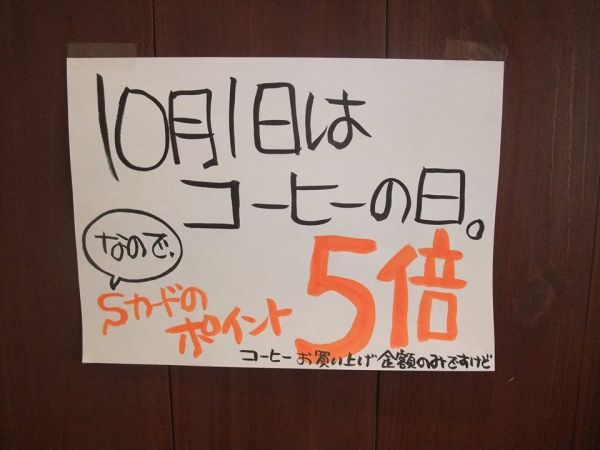 10月1日は
コーヒーの日。
なので、
Sカードの
ポイント
5倍
コーヒーお買い上げ金額のみですけど